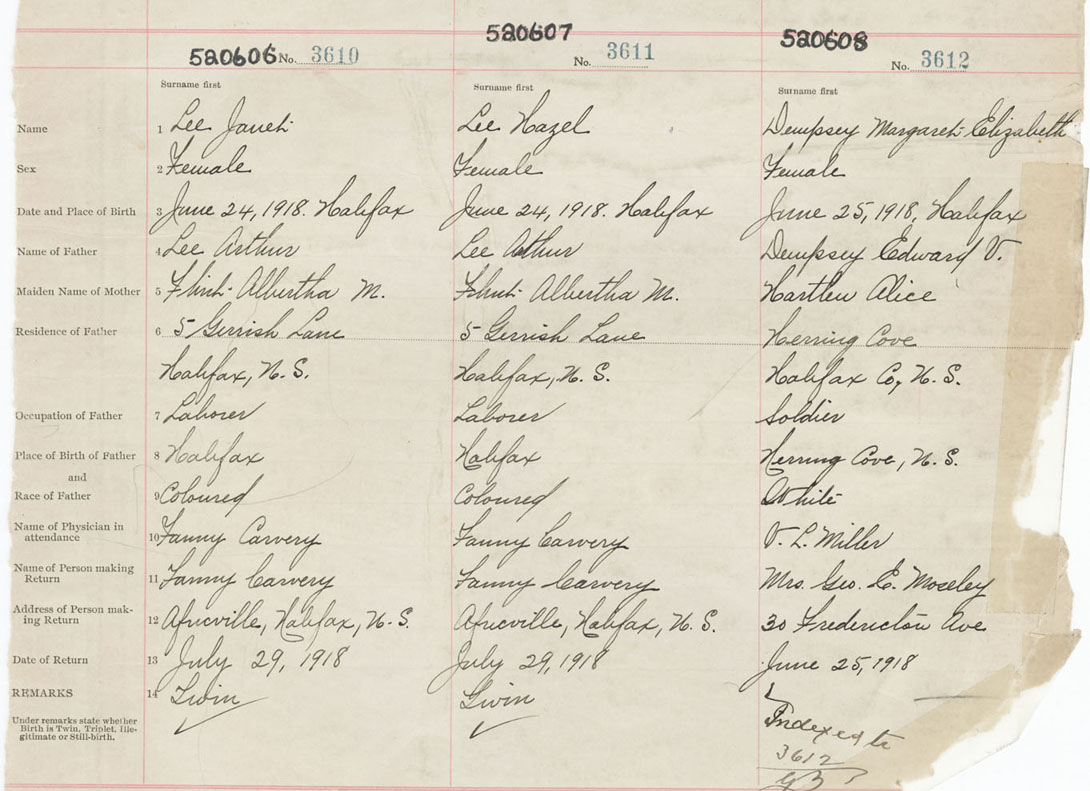 520606 No. 3610 520607 No. 3611 520608 No. 3612
Surname first Surname first Surname first
Name 1 Lee Janet Lee Hazel Dempsey Margaret Elizabeth
Sex 2 Female Female Female
Date and Place of Birth 3 June 24, 1918. Halifax June 24, 1918. Halifax June 25, 1918, Halifax
Name of Father 4 Lee Arthur Lee Arthur Dempsey Edward V.
Maiden Name of Mother 5 Flint Albertha M. Flint Albertha M. Hartlen Alice
Residence of Father 6 5 Gerrish Lane 5 Gerrish Lane Herring Cove
Halifax, N. S. Halifax, N. S. Halifax Co, N. S.
Occupation of Father 7 Laborer Laborer Soldier
Place of Birth of Father 8 Halifax Halifax Herring Cove, N. S.
and
Race of Father 9 Coloured Coloured White
Name of Physician in
attendance 10 Fanny Carvery Fanny Carvery V. L. Miller
Name of Person making
Return 11 Fanny Carvery Fanny Carvery Mrs. Geo. E. Moseley
Address of Person mak-
ing Return 12 Africville, Halifax, N. S. Africville, Halifax, N. S. 30 Fredericton Ave
Date of Return 13 July 29, 1918 July 29, 1918 June 25, 1918
REMARKS 14 Twin Twin
Under remarks state whether
Birth is Twin, Triplet, Ille-
gitimate or Still-birth.
Indexed to
3612